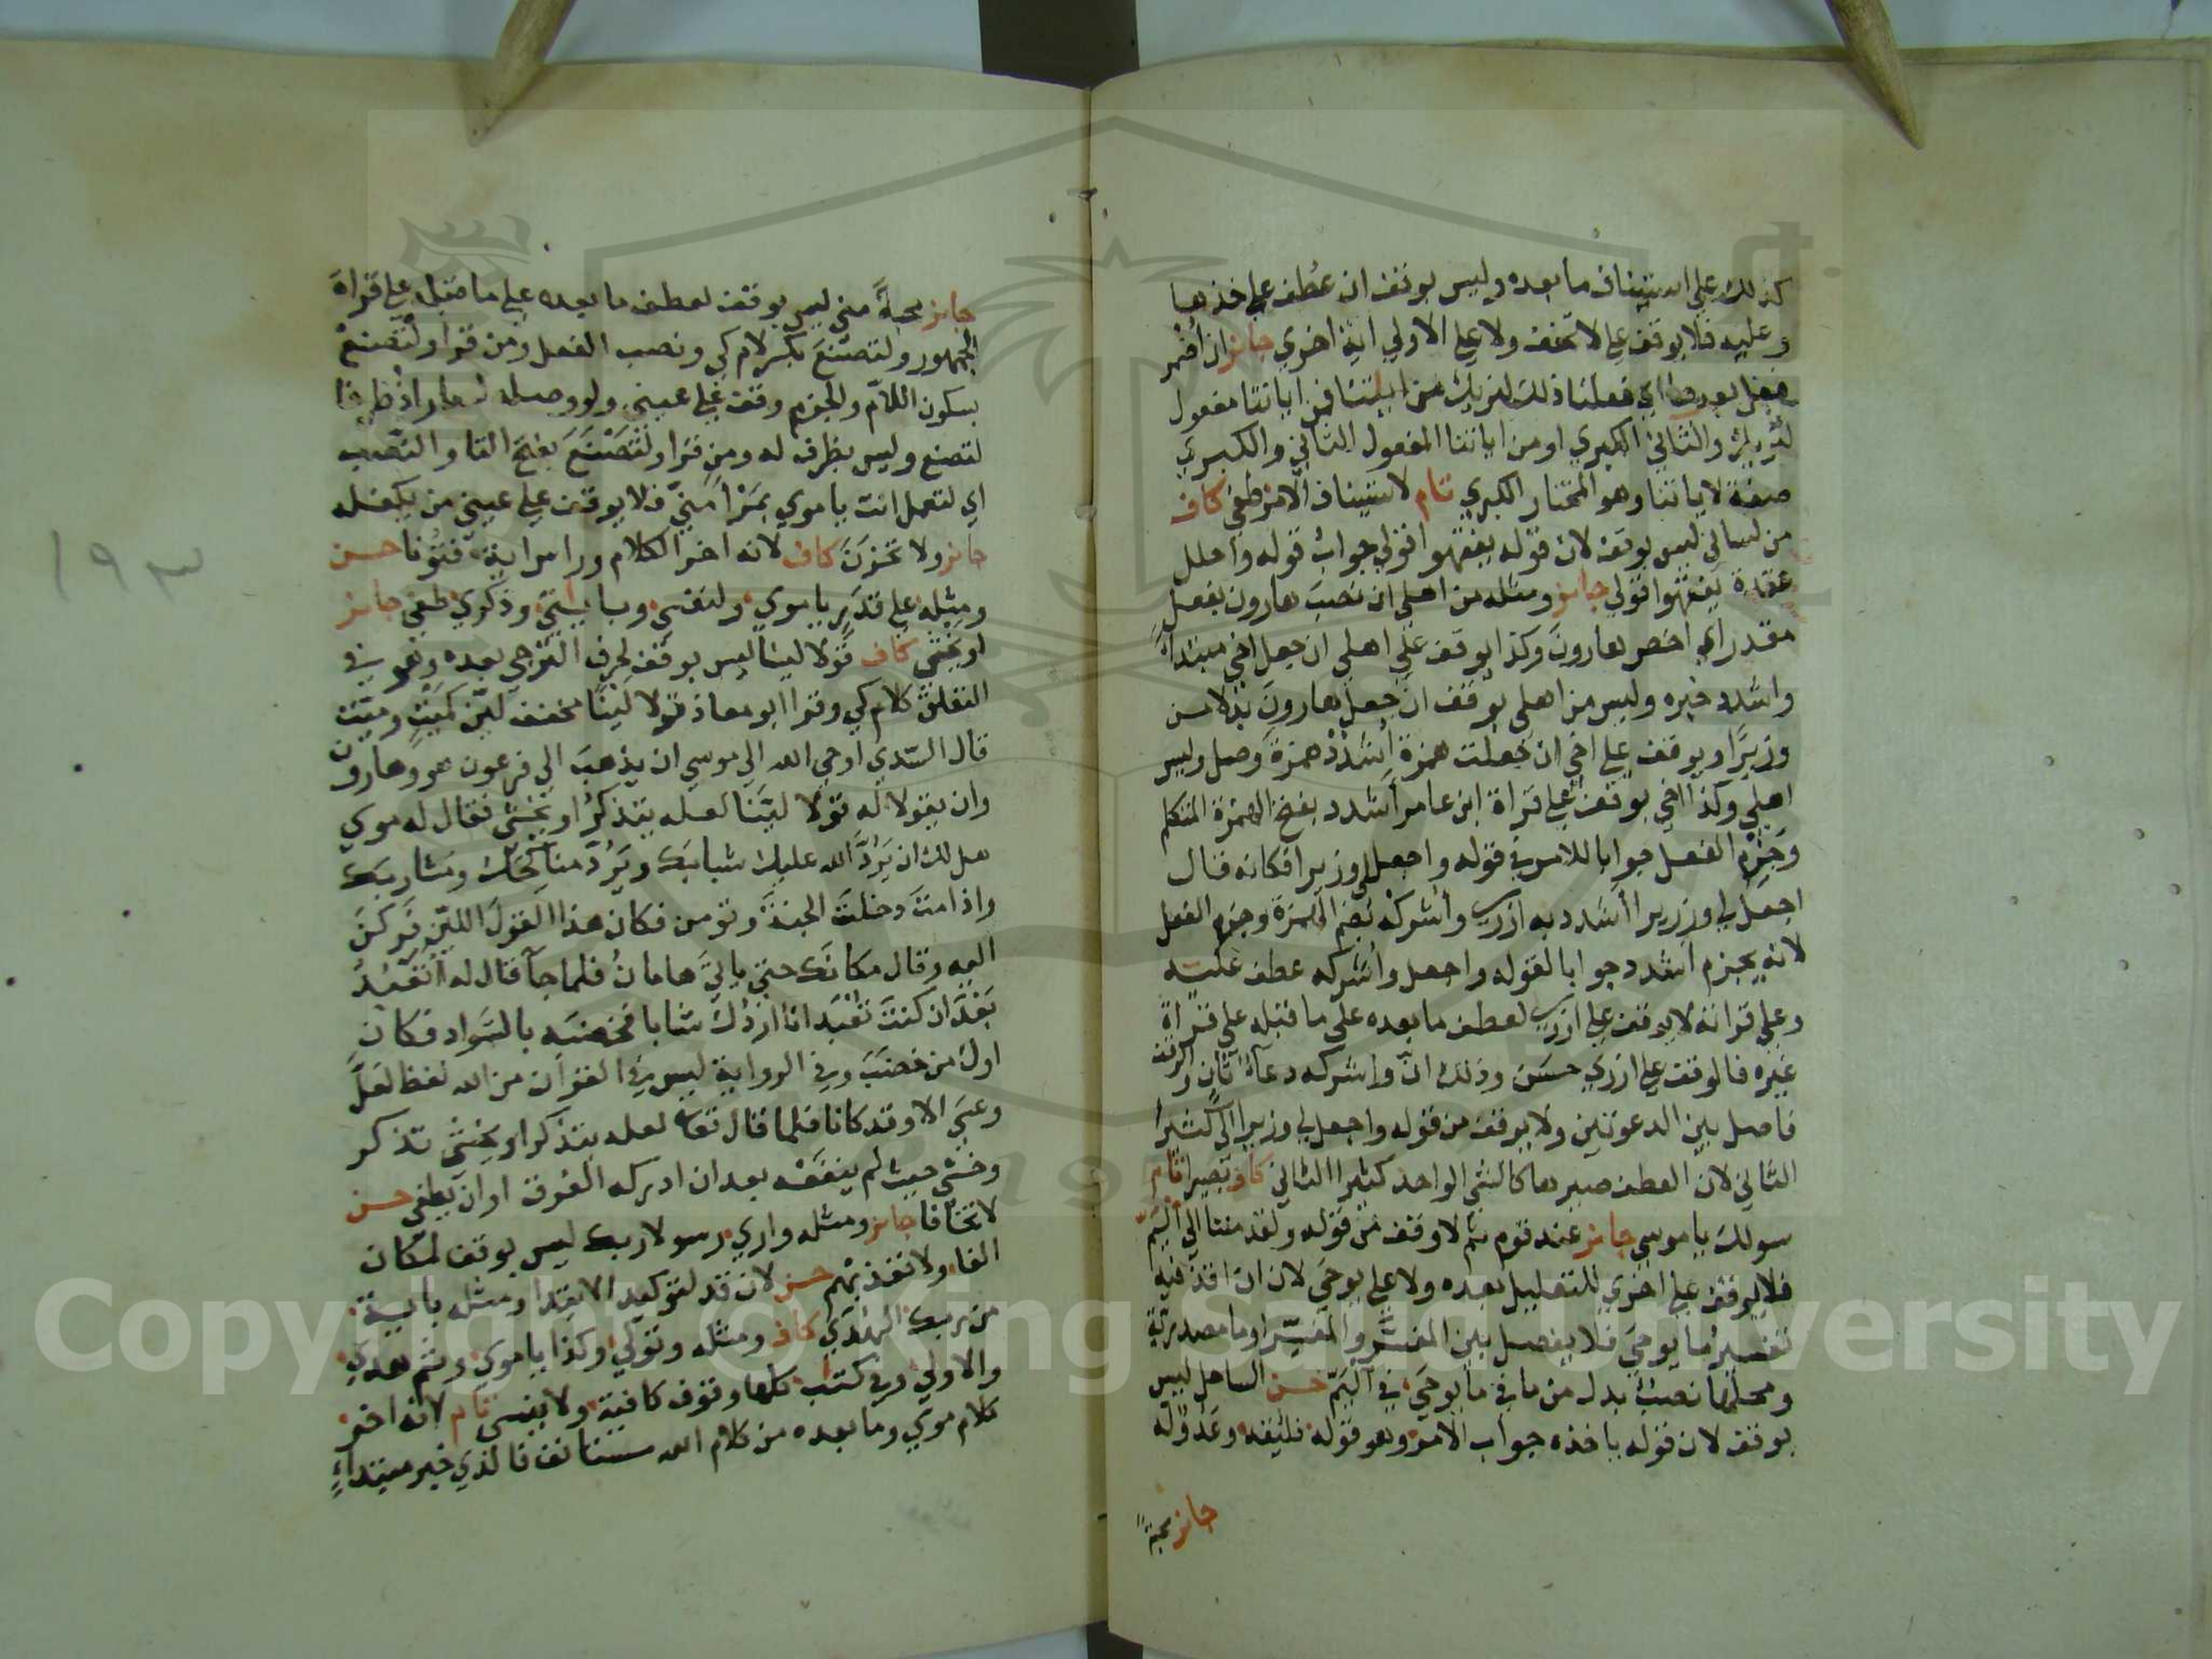 كذلك علي استيناف ما بعده وليس بوقف ان عُطف علي خذها
وعليه فلا يوقف علي لا تخف ولا علي الاولي اية اخري جايز ان اُضمر
فعل بعدها اي فعلنا ذلك لنريك من اياتنا فمن اياتنا مفعول
لنُريك والثاني الكبري او من اياتنا المفعول الثاني والكبري
صفة لاياتنا وهو المختار الكبري تام لاستيناف الامر طغي كاف
من لساني ليس بوقف لان قوله يفقهوا قولي جواب قوله واحلل
عقدة يفقهوا قولي جايز ومثله من اهلي ان نصب هارون بفعل
مقدر اي اخص هارون وكذا يوقف علي اهلي ان جعل اخي مبتداً
واشدد خبره وليس من اهلي بوقف ان جعل هارون بدلا من
وزيرًا ويوقف علي اخي ان جعلت همزة اُشدُدْ همزة وصل وليس
اهلي وكذا اخي بوقف علي قراة ابن عامر أَشدد بفتح الهمزة المتكلم
وجَزْمِ الفعل جوابا للامر في قوله واجعل لي وزيرا فكانه قال
اجعل لي وزيرا أَشدد به ازري وأُشركْه بضم الهمزة وجزم الفعل
لانه يجزم أشدد جوابا لقوله واجعل وأُشركه عطف عليه
وعلي قراته لا يوقف علي ازري لعطف ما بعده علي ما قبله علي قراة
غيره فالوقف علي ازري حسن وذلك انّ واشركه دعآءٌ ثانٍ والوقف
فاصل بين الدعوتين ولا يوقف من قوله واجعل لي وزيرا الي كثيرا
الثاني لان العطف صيرها كالشي الواحد كثيرا الثاني كاف بصيرا تام
سولك يا موسي جايز عند قوم ثم لا وقف من قوله ولقد مننا الي اليَمّ
فلا يوقف علي اخري للتعليل بعده ولا علي يوحَي لان ان اقذفيه
تفسيرُ ما يوحَي فلا يفصل بين المفسَّر والمفسِّر او ما مصدرية
ومحلها نصبٌ بدل من ما في ما يوحَي في اليَمّ حسن الساحل ليس
بوقف لان قوله ياخذه جواب الامر وهو قوله فليلقه وعدوٌّ له
جايز محبةً
جايز محبةً مني ليس بوقف لعطف ما بعده علي ما قبله علي قراة
الجمهور ولتصنعَ بكسر لام كي ونصب الفعل ومن قرا ولْتُصنعْ
بسكون اللام والجزم وقف علي عيني ولو وصله لصار اذْ ظرفا
لتصنع وليس بظرف له ومن قرا ولِتَصْنَعَ بفتح التا والنصب
اي لتعمل انت يا موسي بمَرْأً مِنّي فلا يوقف علي عيني من يكفله
جايز ولا تحزنَ كاف لانه اخر الكلام وراس اية فتُونا حسن
ومثله علي قدَرٍ يا موسي ولنفسي وباياتي وذكري طغي جايز
او يخشي كاف قولا لينا ليس بوقف لحرف الترجي بعده وهو في
التعلق كلام كي وقرا ابو معاذ قولا لَيْنًا مخفف ليّن كمَيْتٍ وميّت
قال السّدي اوحي الله الي موسي ان يذهب الي فرعون هو وهارون
وان يقولا له قولا ليّنا لعله يتذكر او يخشي فقال له موسي
هل لك ان يَرُدَّ الله عليك شبابك ويَرُدَّ مناكحَك ومشاربك
واذا متَّ دخلتَ الجنة وتومن فكان هذا القول الليّن فركن
اليه وقال مكانك حتي ياتيَ هامانُ فلما جآ قال له أتَعْبُدُ
بَعْدَ ان كنتَ تُعْبَد انا اردُّك شابا فخضبه بالسَّواد فكان
اول من خضَبَ وفي الرواية ليس في القران من الله لفظ لعلّ
وعسَي الا وقد كانا فلما قال تعالي لعله يتذكر او يخشي تذكر
وخشي حيث لم ينفعْه بعد ان ادركه الغرق او ان يطغي حسن
لا تخافا جايز ومثله واري رسولا ربك ليس بوقف لمكان
الفا ولا تعذبهم حسن لان قد لتوكيد الابتدا ومثله باية
من ربك الهُدَي كاف ومثله وتولي وكذا يا موسي وثم هدَي
والاولي وفي كتاب كلها وقوف كافية ولا ينسي تام لانه اخر
كلام موسي وما بعده من كلام الله مستانف فالذي خبر مبتداءٍ
١٩٣
Copyright © King Saud University